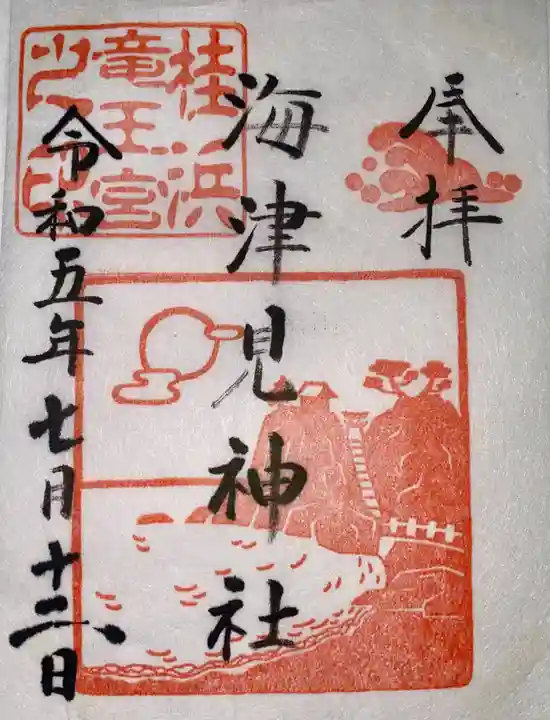 奉拝
海津見神社
桂浜
竜王宮
之印
令和五年七月十三日